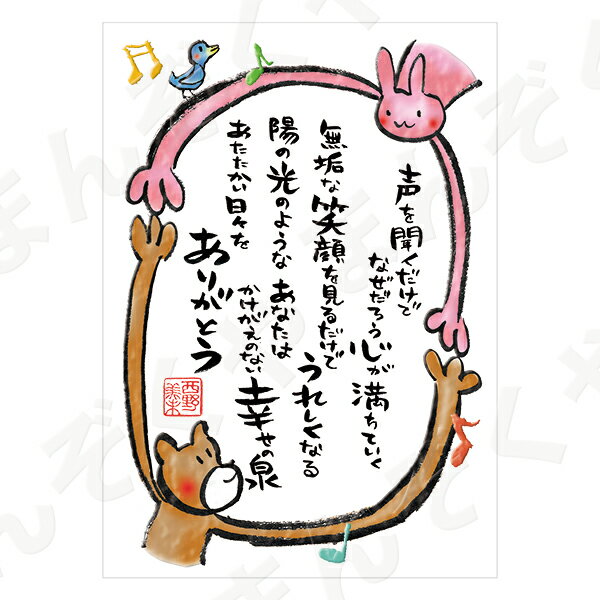 声を聞くだけで
なぜだろう心が満ちていく
無垢な笑顔を見るだけで
うれしくなる
陽の光のような あなたは
かけがえのない幸せの泉
あたたかい日々を
ありがとう
まんぞくや